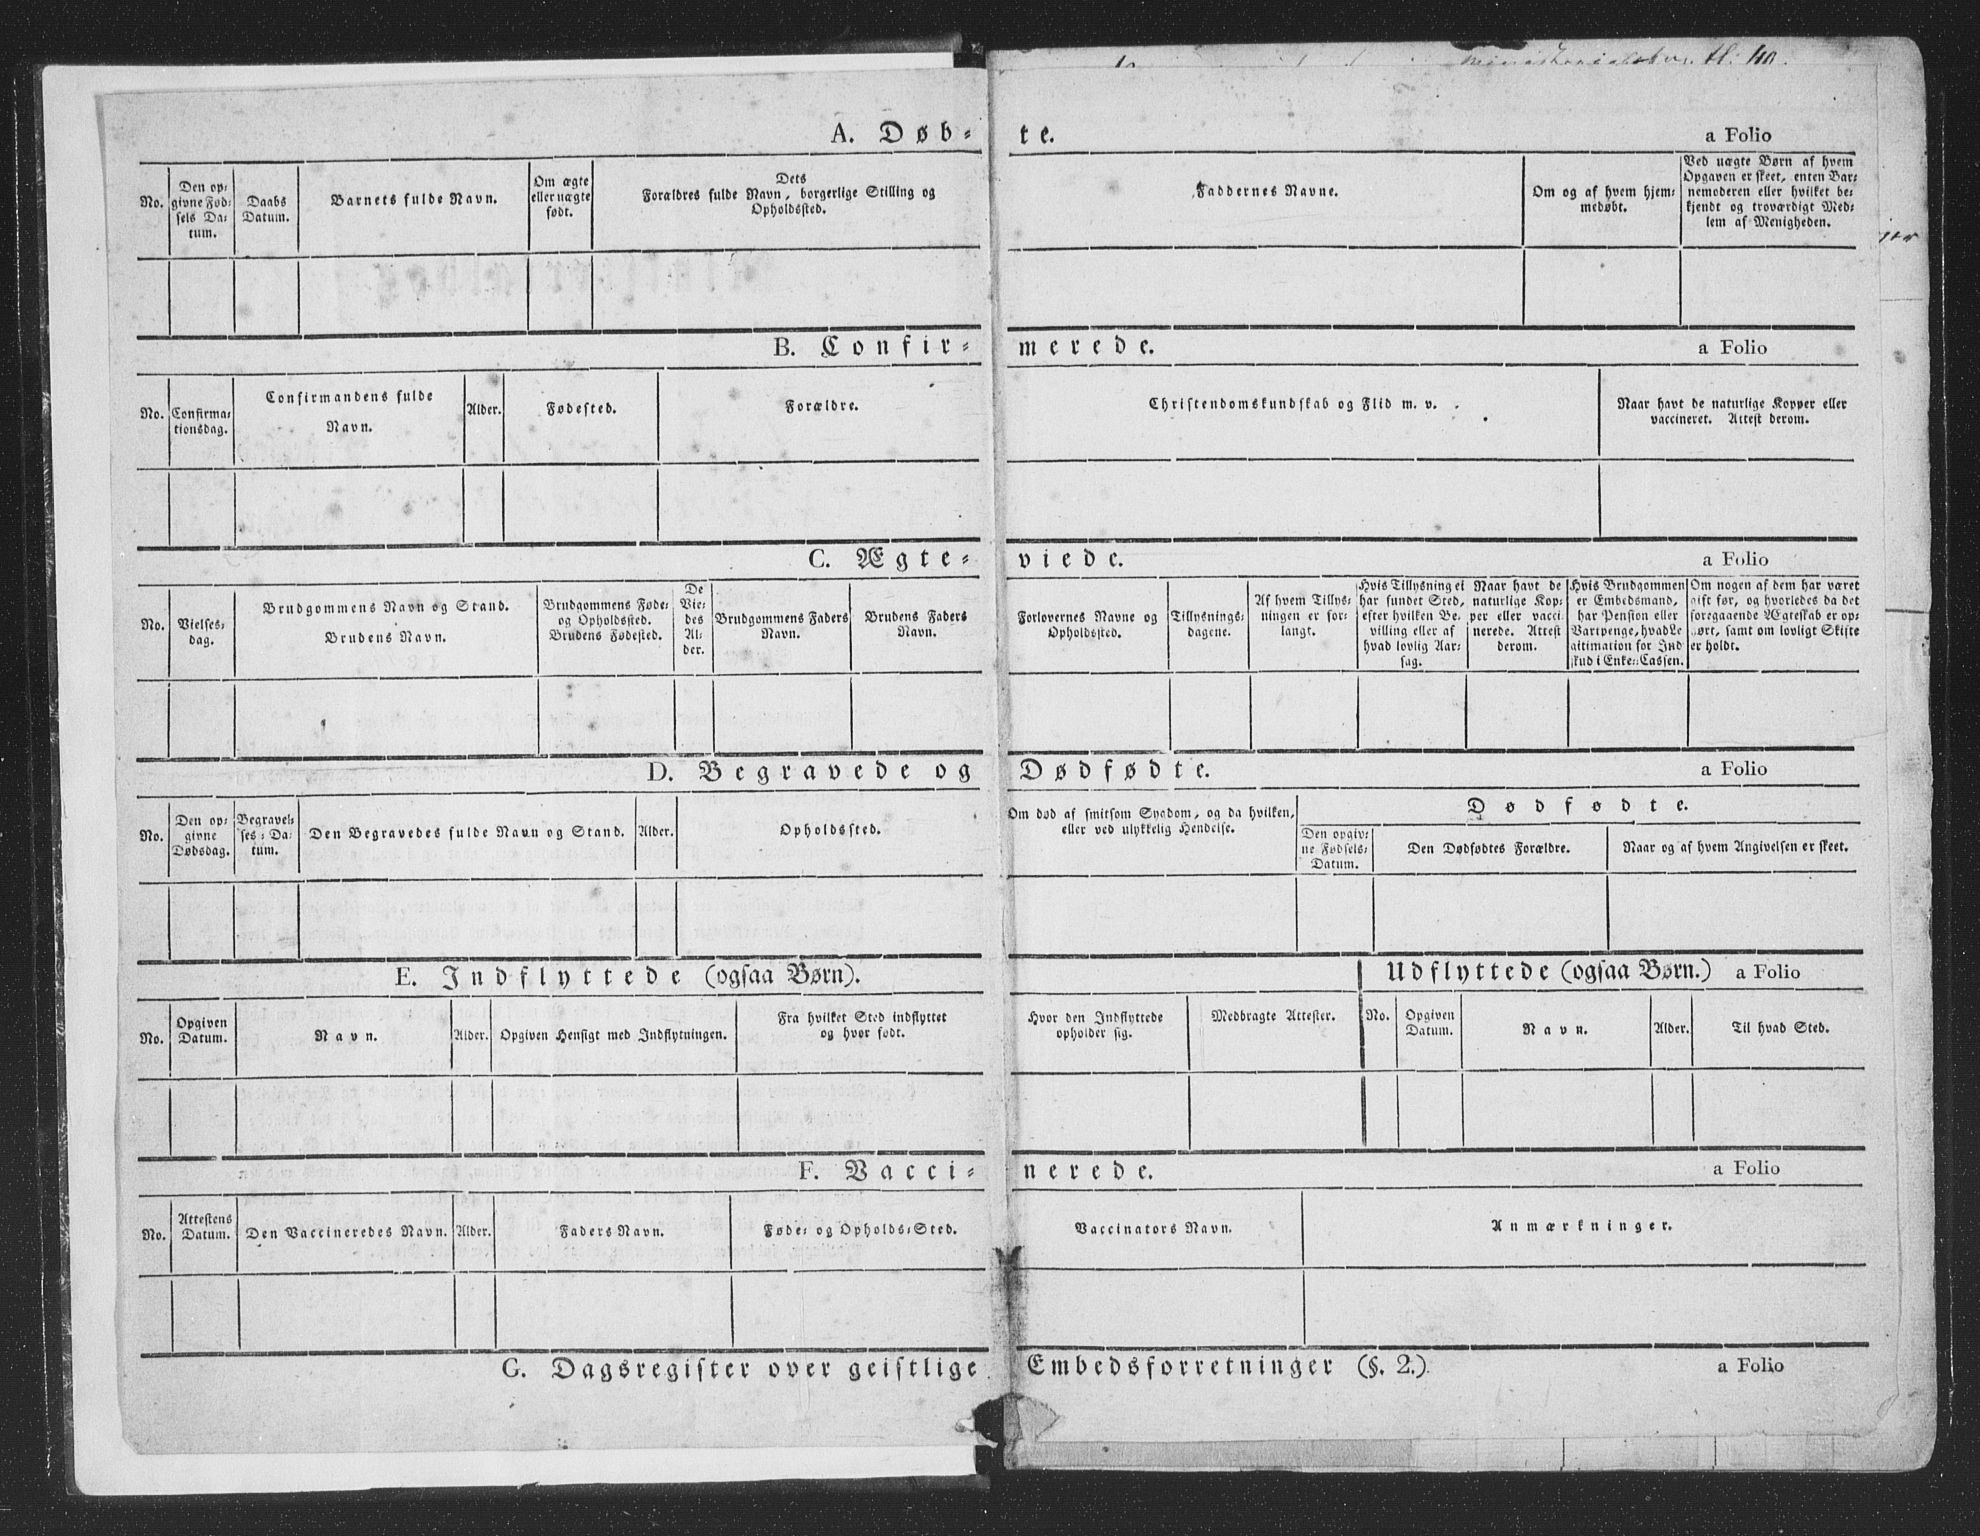 A. Døb-te. a Folio
No.
Den op-
givne Fød-
sels Da-
tum.
Daabs
Datum.
Barnets fulde Navn.
Om ægte
eller uægte
født.
Dets
Forældres fulde Navn, borgerlige Stilling og
Opholdssted.
Faddernes Navne.
Om og af hvem hjem-
medøbt.
Ved uægte Børn af hvem
Opgaven er skeet, enten Bar-
nemoderen eller hvilket be-
kjendt og troværdigt Med-
lem af Menigheden.
B. Confir-merede. a Folio
No.
Confirma-
tionsdag.
Confirmandens fulde
Navn.
Alder.
Fødested.
Forældre.
Christendomskundskab og Flid m. v.
Naar havt de naturlige Kopper eller
vaccineret. Attest derom.
C. Ægte-viede. a Folio
No.
Vielses-
dag.
Brudgommens Navn og Stand.
Brudens Navn.
Brudgommens Føde-
og Opholdssted.
Brudens Fødested.
De
Vie-
des
Al-
der.
Brudgommens Faders
Navn.
Brudens Faders
Navn.
Forlovernes Navne og
Opholdssted.
Tillysnings-
dagene.
Af hvem Tillys-
ningen er for-
langt.
Hvis Tillysning ei
har fundet Sted,
efter hvilken Be-
villing eller af
hvad lovlig Aar-
sag.
Naar havt de
naturlige Kop-
per eller vacci-
nerede. Attest
derom.
Hvis Brudgommen
er Embedsmand,
har Pension eller
Vartpenge, hvad Le-
gitimation for Ind-
skud i Enke-Cassen.
Om nogen af dem har været
gift før, og hvorledes da det
foregaaende Ægteskab er op-
hørt, samt om lovligt Skifte
er holdt.
D. Begravede og Dødfødte. a Folio
No.
Den op-
givne
Dødsdag.
Begravel-
ses-Da-
tum.
Den Begravedes fulde Navn og Stand.
Alder.
Opholdssted.
Om død af smitsom Sygdom, og da hvilken,
eller ved ulykkelig Hendelse.
Dødfødte.
Den opgiv-
ne Fødsels-
Datum.
Den Dødfødtes Forældre.
Naar og af hvem Angivelsen er skeet.
E. Indflyttede (ogsaa Børn). Udflyttede (ogsaa Børn.) a Folio
No.
Opgiven
Datum.
Navn.
Alder.
Opgiven Hensigt med Indflytningen.
Fra hvilket Sted indflyttet
og hvor født.
Hvor den Indflyttede
opholder sig.
Medbragte Attester.
No.
Opgiven
Datum.
Navn.
Alder.
Til hvad Sted.
F. Vacci-nerede. a Folio
No.
Attestens
Datum.
Den Vaccineredes Navn.
Alder.
Faders Navn.
Føde- og Opholds-Sted.
Vaccinators Navn.
Anmærkninger.
G. Dagsregister over geistlige Embedsforretninger (§. 2.) a Folio